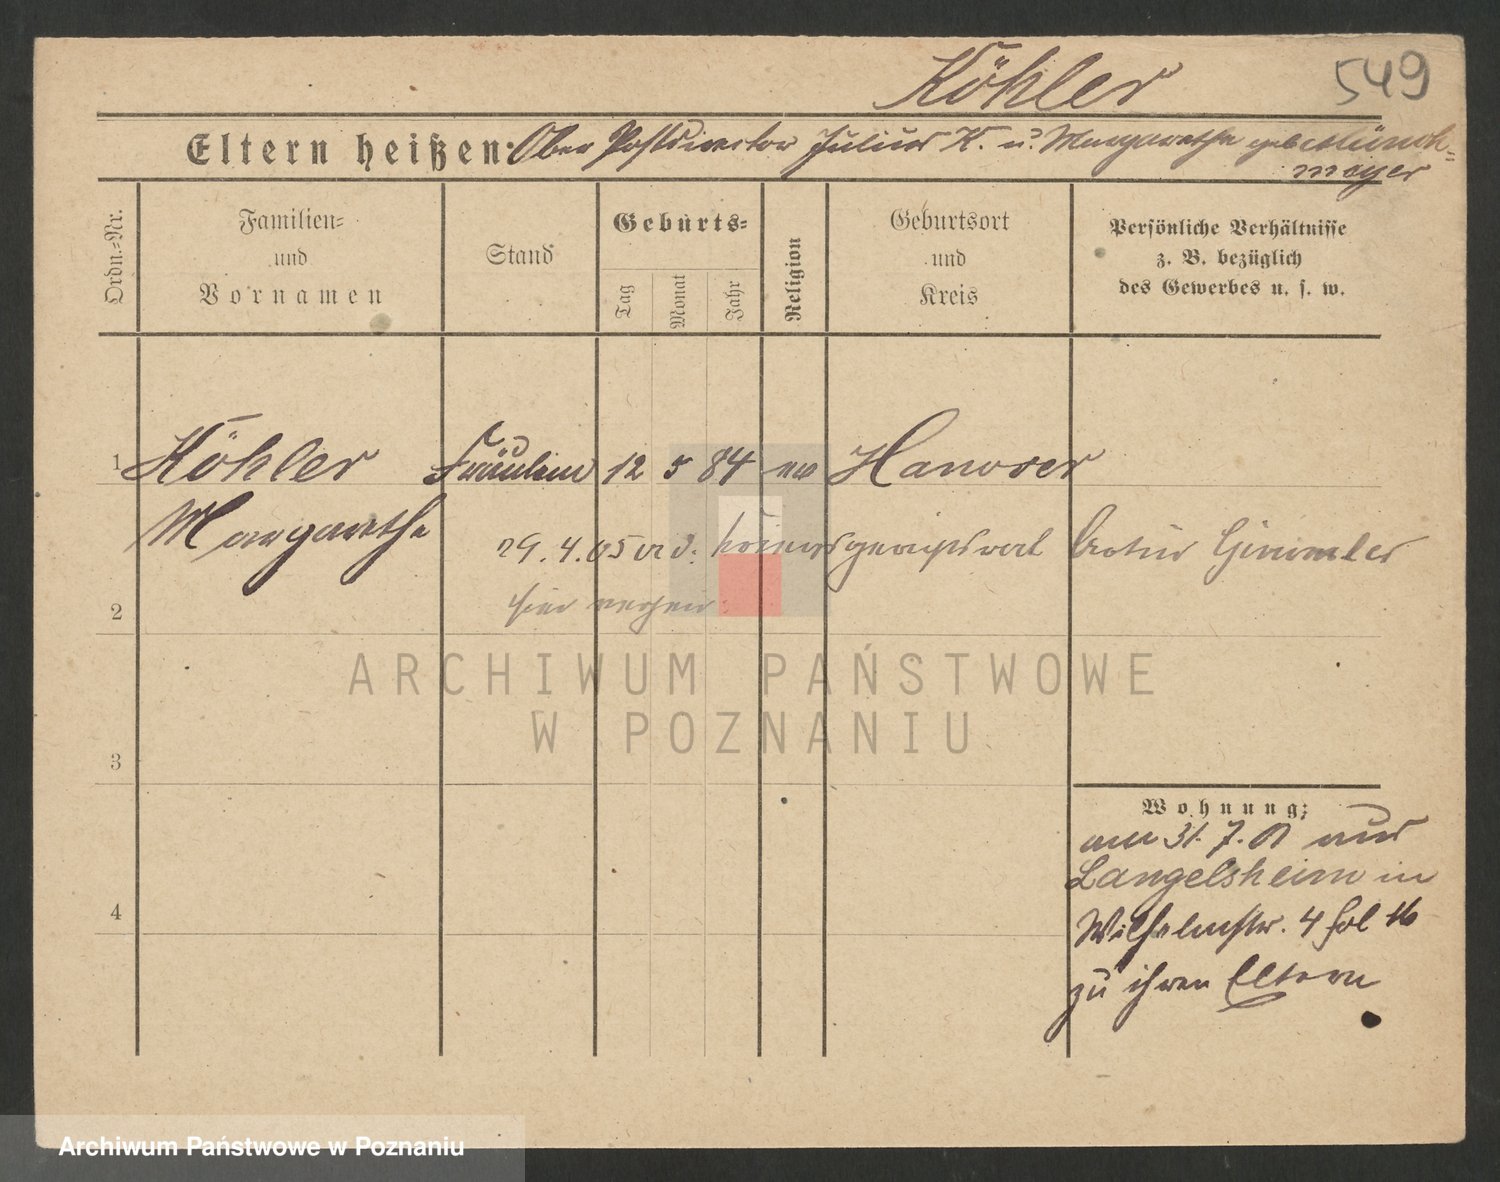 Köhler 549
Eltern heißen: Ober Postdirector Julius K. u. Margarethe geb Münch=
meyer
Ordn.=Nr.
Familien=
und
Vornamen
Stand
Geburts=
Tag
Monat
Jahr
Religion
Geburtsort
und
Kreis
Persönliche Verhältnisse
z. B. bezüglich
des Gewerbes u. s. w.
1 Köhler Fräulein 12 5 84 ev Hanover
Margarethe
29. 4. 05 m. d. gerichtsrat Artur Gimmler
hier
2
ARCHIWUM PAŃSTWOWE
W POZNANIU
3
Wohnung:
am 31. 7. 01 aus
Langelsheim in
4
Wilhelmstr. 4 fol 16
zu ihren Eltern
Archiwum Państwowe w Poznaniu